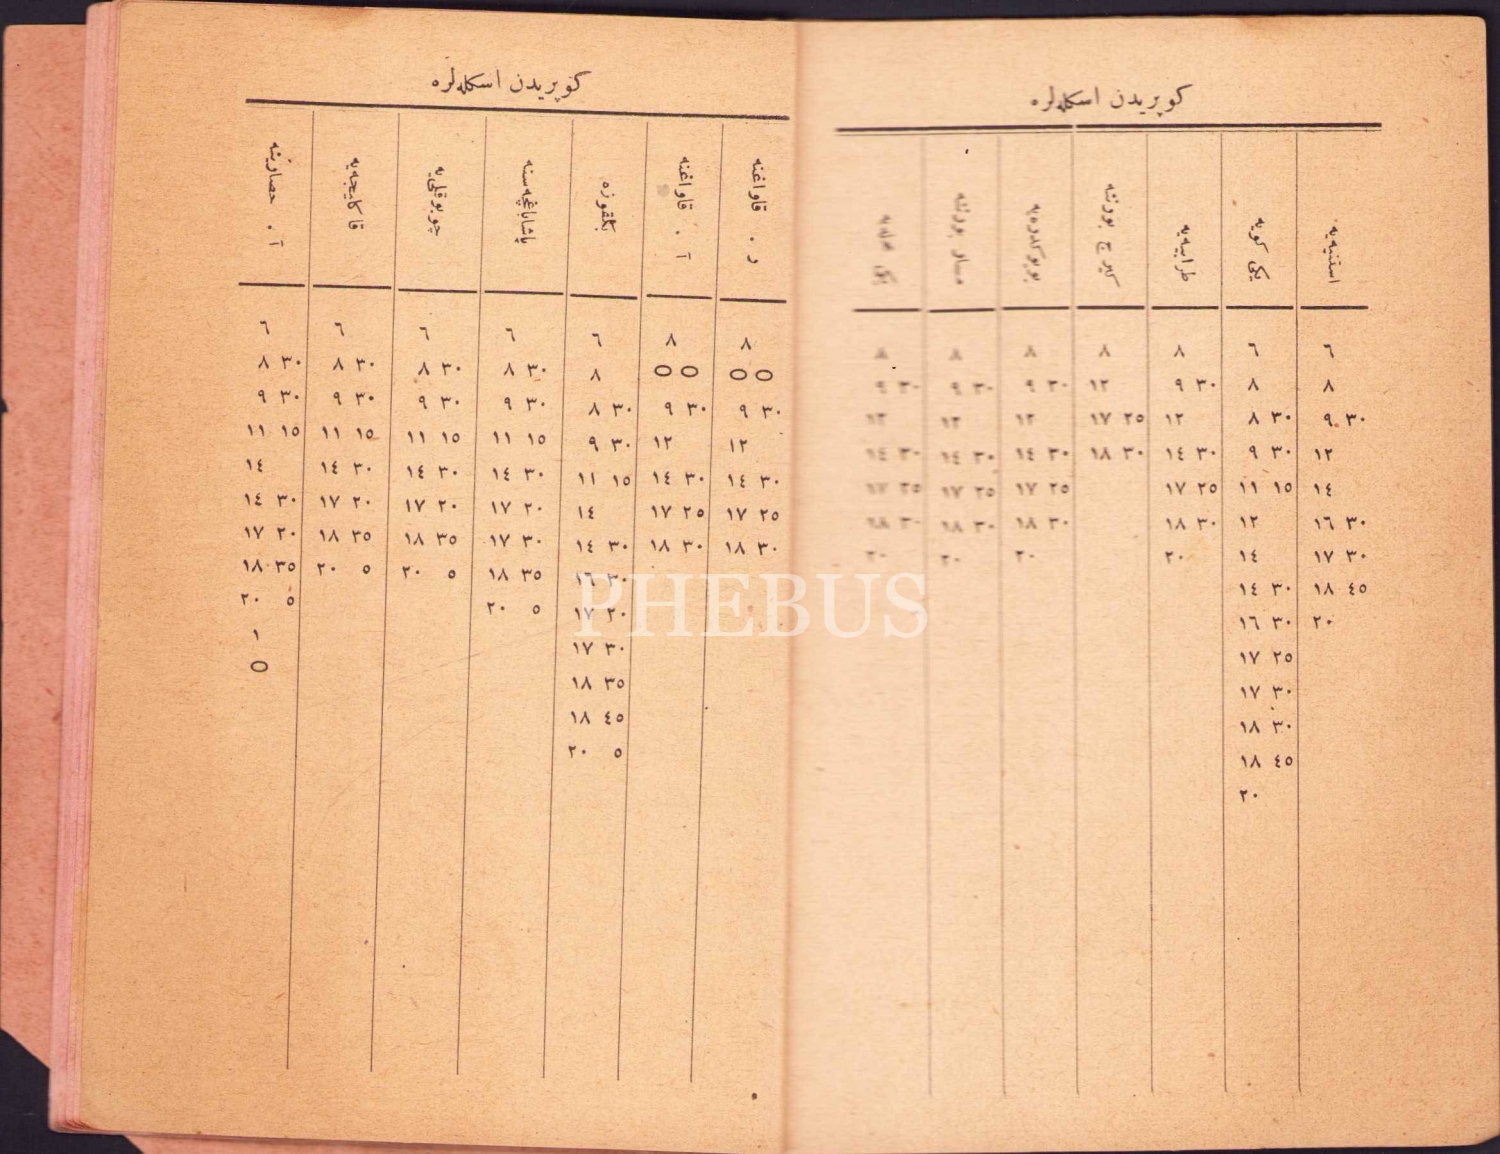 كوپریدن اسكله‌لره
استنیه‌یه
٦
٨
٩ ٣٠
١٢
١٤
١٦ ٣٠
١٧ ٣٠
١٨ ٤٥
٢٠
یكی كویه
٦
٨
٨ ٣٠
٩ ٣٠
١١ ١٥
١٢
١٤
١٤ ٣٠
١٦ ٣٠
١٧ ٢٥
١٧ ٣٠
١٨ ٣٠
١٨ ٤٥
٢٠
طرابیه‌یه
٨
٩ ٣٠
١٢
١٤ ٣٠
١٧ ٢٥
١٨ ٣٠
٢٠
كیرچ بورننه
٨
١٢
١٧ ٢٥
١٨ ٣٠
بویوكدره‌یه
٨
٩ ٣٠
١٢
١٤ ٣٠
١٧ ٢٥
١٨ ٣٠
٢٠
مسار بورننه
٨
٩ ٣٠
١٢
١٤ ٣٠
١٧ ٢٥
١٨ ٣٠
٢٠
یكی محله‌یه
٨
٩ ٣٠
١٢
١٤ ٣٠
١٧ ٢٥
١٨ ٣٠
٢٠
كوپریدن اسكله‌لره
ر . قاواغنه
٨
٥ ٥
٩ ٣٠
١٢
١٤ ٣٠
١٧ ٢٥
١٨ ٣٠
آ . قاواغنه
٨
٥ ٥
٩ ٣٠
١٢
١٤ ٣٠
١٧ ٢٥
١٨ ٣٠
بكقوزه
٦
٨
٨ ٣٠
٩ ٣٠
١١ ١٥
١٤
١٤ ٣٠
١٦ ٣٠
١٧ ٢٠
١٧ ٣٠
١٨ ٣٥
١٨ ٤٥
٢٠ ٥
پاشاباغچه‌سنه
٦
٨ ٣٠
٩ ٣٠
١١ ١٥
١٤ ٣٠
١٧ ٢٠
١٧ ٣٠
١٨ ٣٥
٢٠ ٥
چوبوقلی‌یه
٦
٨ ٣٠
٩ ٣٠
١١ ١٥
١٤ ٣٠
١٧ ٢٠
١٨ ٣٥
٢٠ ٥
قاكلیجه‌یه
٦
٨ ٣٠
٩ ٣٠
١١ ١٥
١٤ ٣٠
١٧ ٢٠
١٨ ٣٥
٢٠ ٥
آ . حصارینه
٦
٨ ٣٠
٩ ٣٠
١١ ١٥
١٤
١٤ ٣٠
١٧ ٢٠
١٨ ٣٥
٢٠ ٥
١
٥
PHEBUS